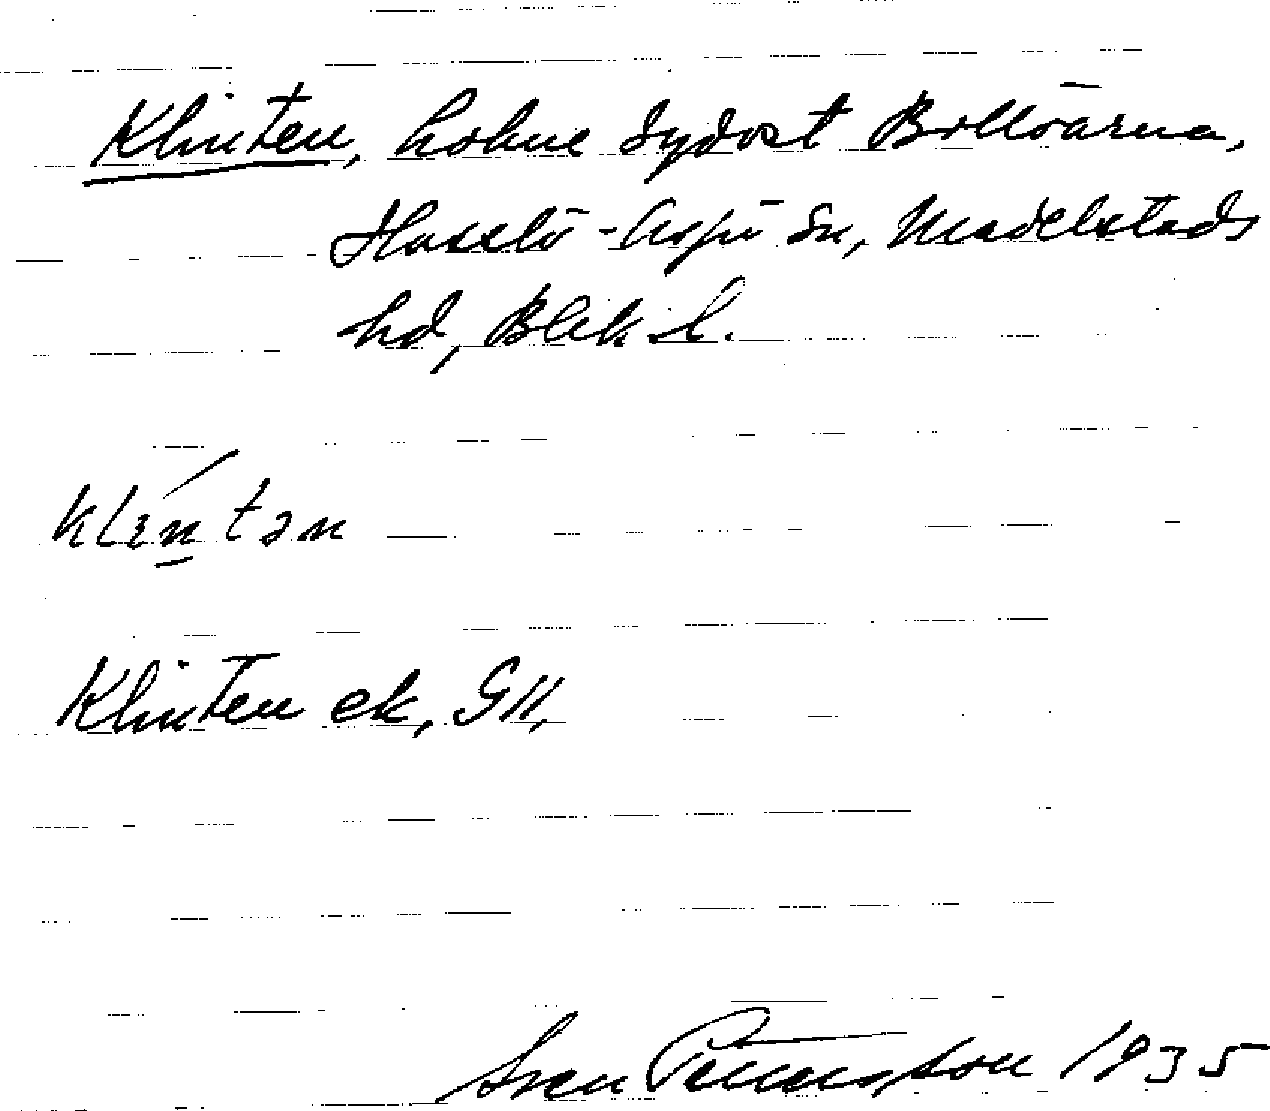 Klinten, holme sydost Bollöarna,
Hasslö-Aspö sn, Medelstads
hd, Blek. l.
klıntən
Klinten ek, GK,
Sven 1935